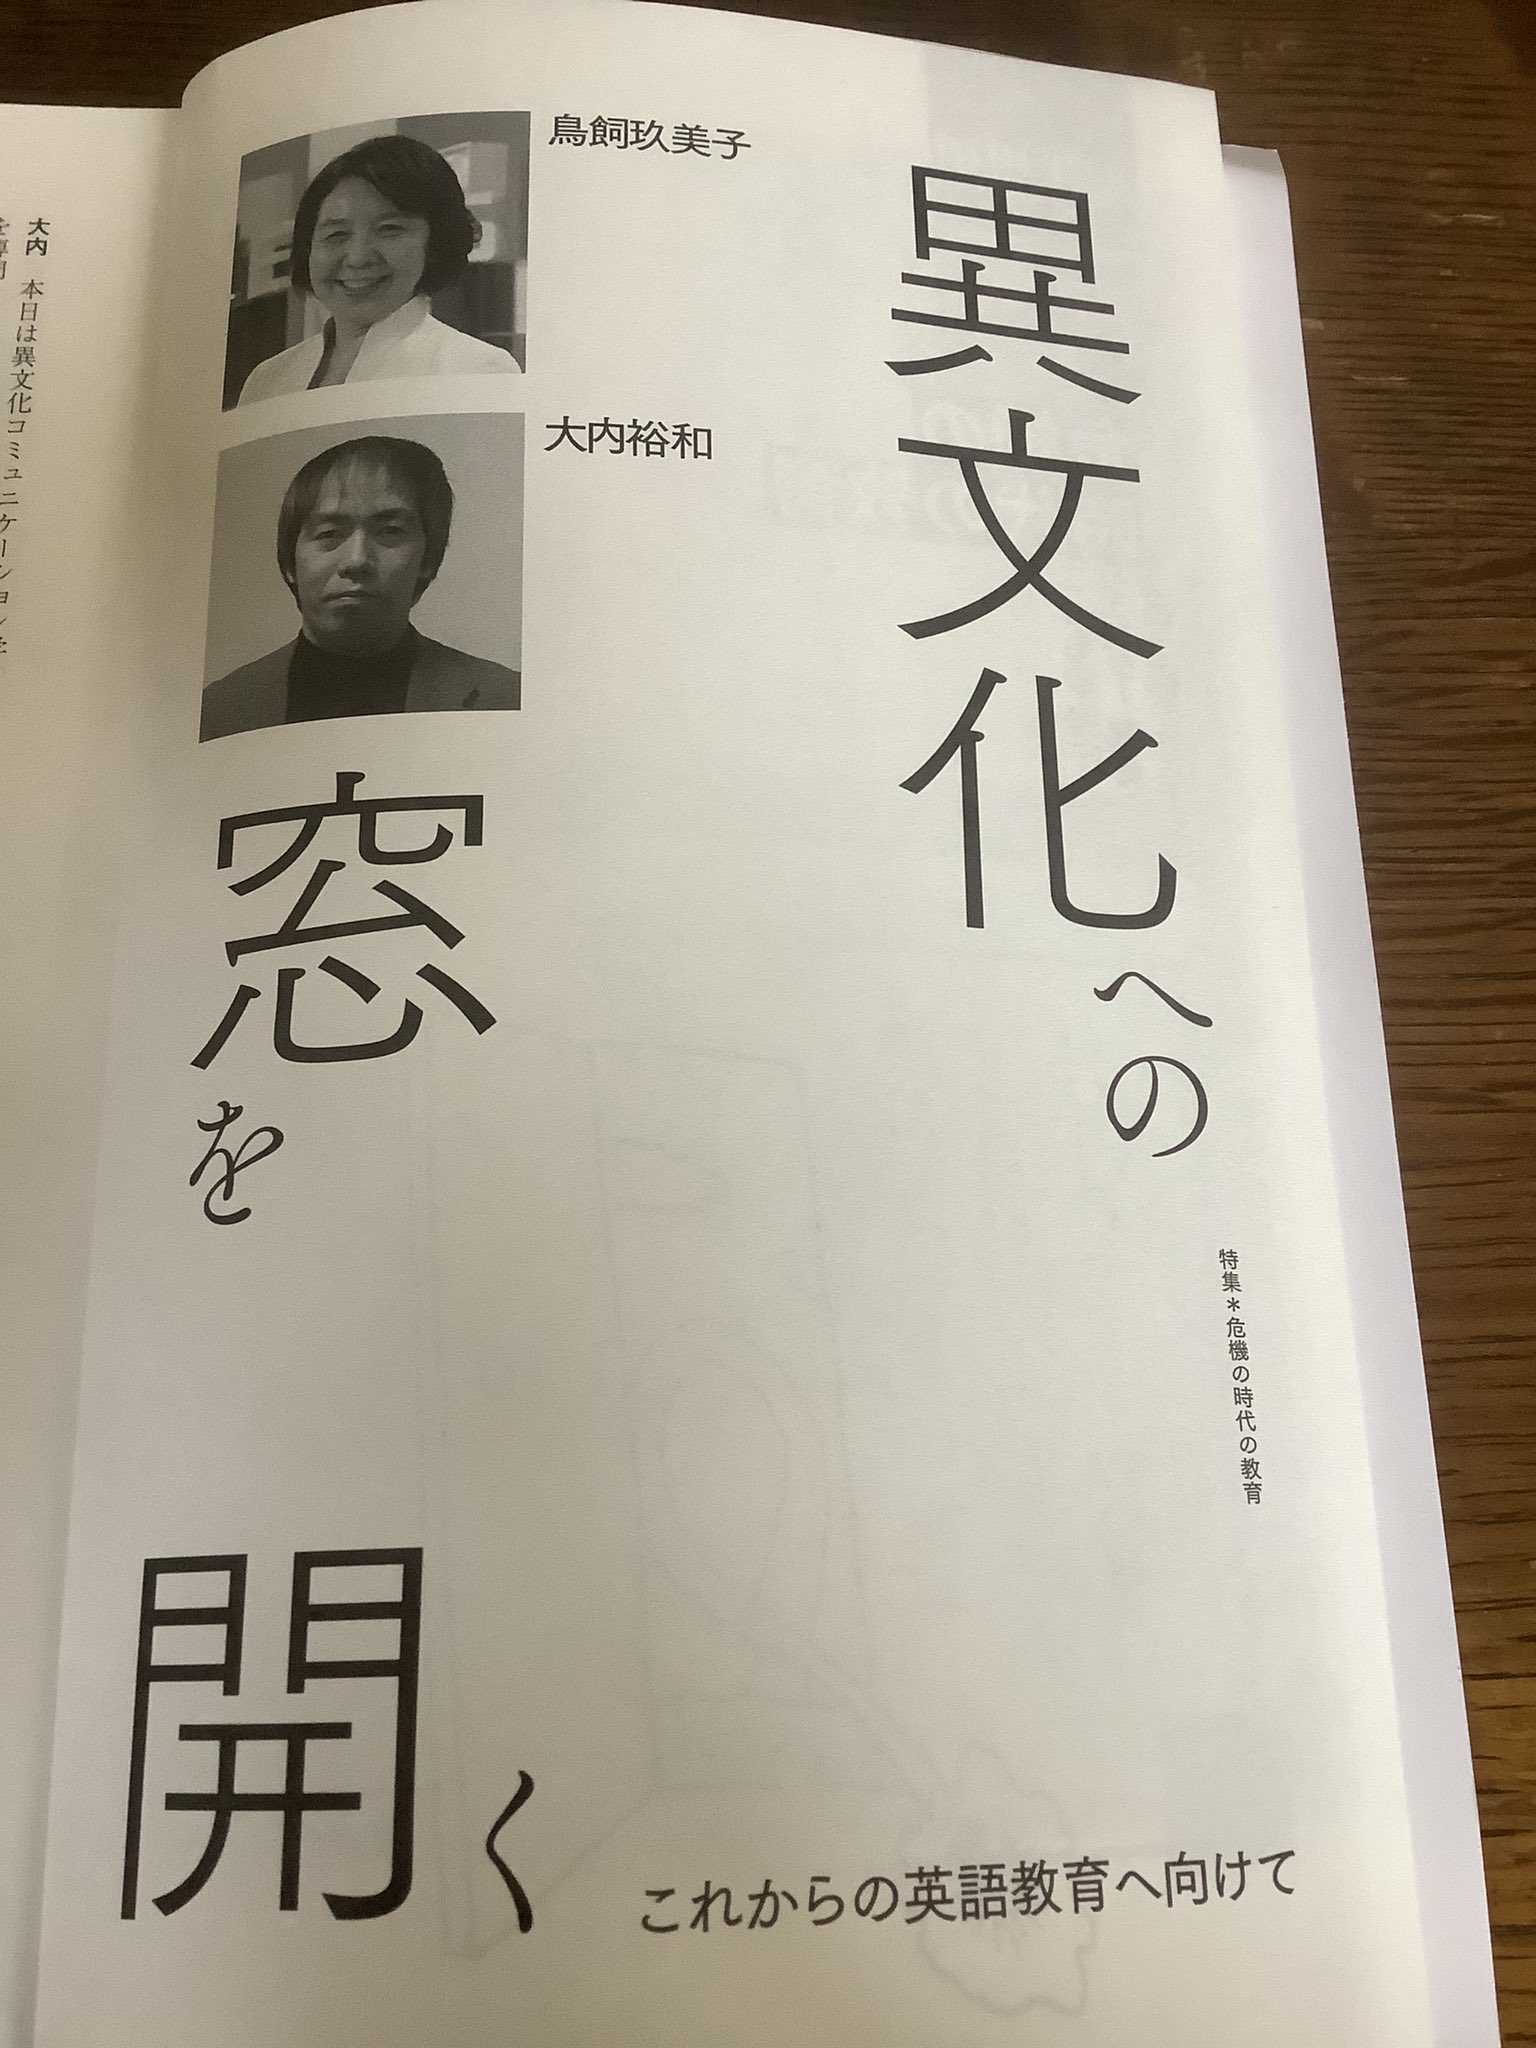 特集*危機の時代の教育
異文化への
窓を
開く
これからの英語教育へ向けて
鳥飼玖美子
大内裕和
大内　本日は異文化コミュニケーション学